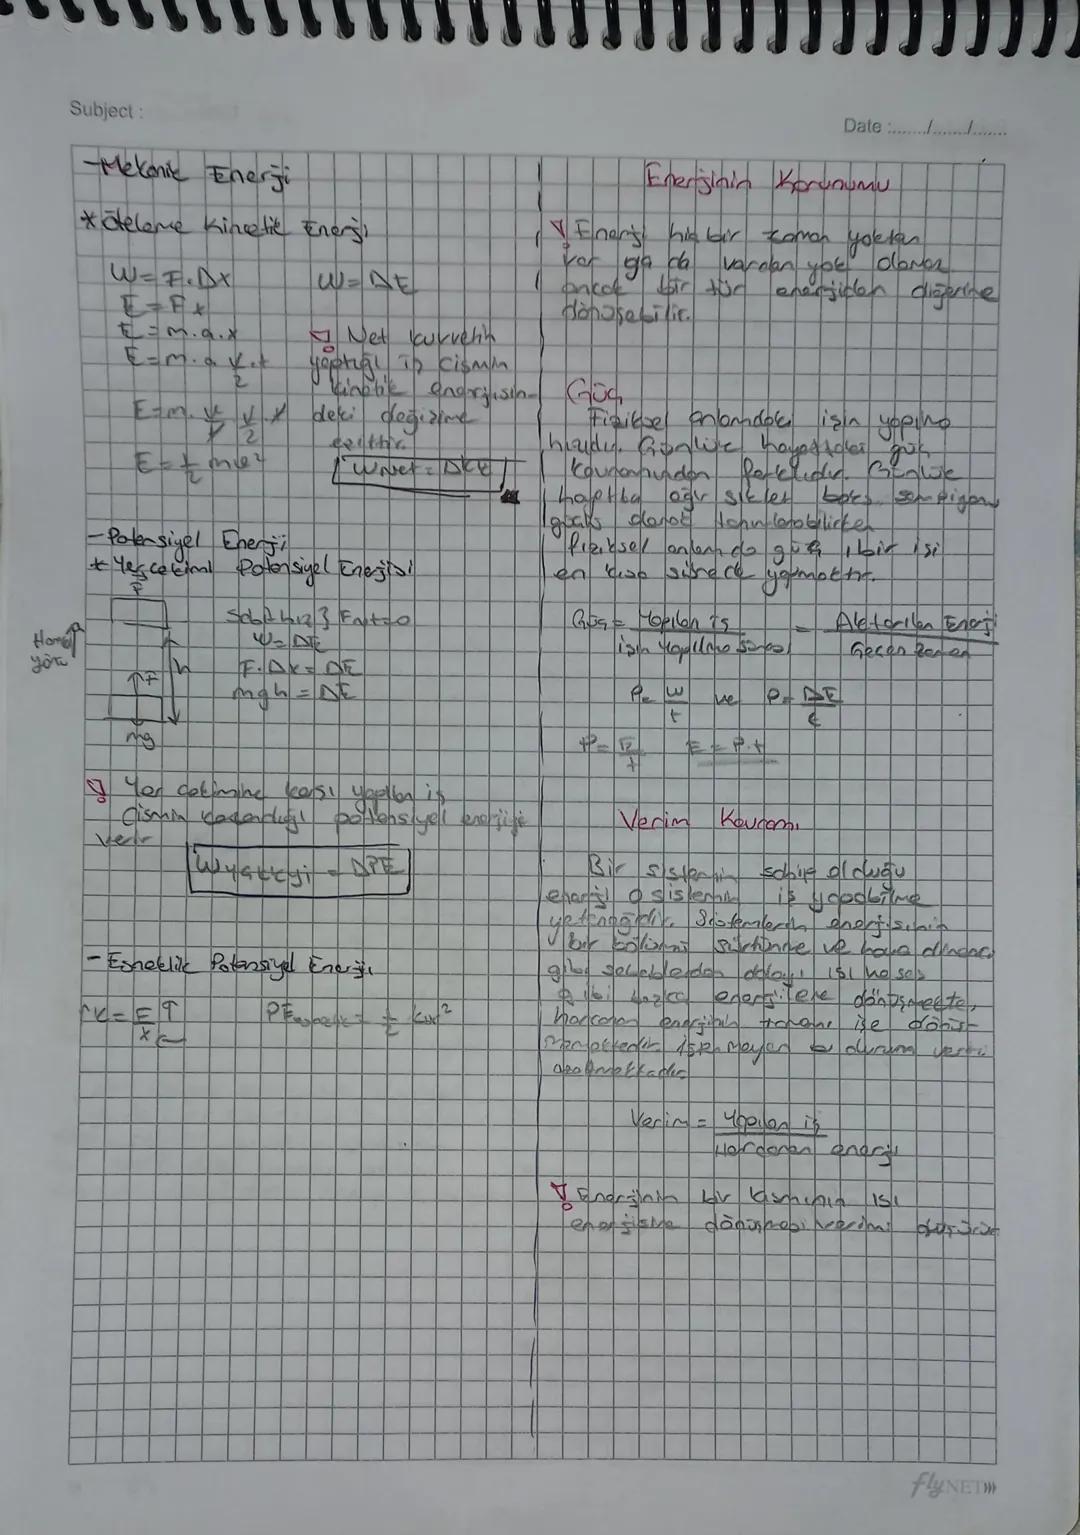 Subject :
Date :......./......./.......
-Mekanik Enerji
* Öteleme Kinetik Enerji
W=F.Δx W=ΔE
E=F x
E=m.a.x
E=m.a v/2.t
E=m. v/t v/2 t
E=1/2 mv²
! Net kuvvetin
yaptığı iş cismin
kinetik enerjisin-
deki değişime
eşittir.
Wnet=ΔKE
-Potansiyel Enerji
* Yerçekimi Potansiyel Enerjisi
F
Hareket
yönü
F
h
mg
Sabit hız } Fnet=0
W=ΔE
F.Δx=ΔE
mgh=ΔE
! Yer çekimine karşı yapılan iş
cismin kazandığı potansiyel enerjiyi
verir
= ΔPE
-Esneklik Potansiyel Enerji
K=F/x
PEesneklik=1/2 kx²
Enerjinin Korunumu
! Enerji hiçbir zaman yoktan
var ya da vardan yok olamaz
ancak bir tür enerjiden diğerine
dönüşebilir.
Güç
Fiziksel anlamdaki işin yapılma
hızıdır. Günlük hayattaki güç
kavramından farklıdır. Günlük
hayatta ağır siklet boks şampiyonu
güçlü olarak tanımlanabilirken
fiziksel anlamda güç, bir işi
en kısa sürede yapmaktır.
Güç = Yapılan iş / işin yapılma süresi = Aktarılan Enerji / Geçen zaman
P=W/t ve P=ΔE/t
P=E/t E=P.t
Verim Kavramı
Bir sistemin sahip olduğu
enerji o sistemin iş yapabilme
yeteneğidir. Sistemlerin enerjisinin
bir bölümü sürtünme ve hava direnci
gibi sebeplerden dolayı ısı ve ses
gibi başka enerjilere dönüşmekte,
harcanan enerjinin tamamı işe dönüş-
memektedir. İstenmeyen bu durum verimi
azaltmaktadır
Verim = Yapılan iş / Harcanan enerji
! Enerjinin bir kısmının ısı
enerjisine dönüşmesi verimi düşürür
flyNET